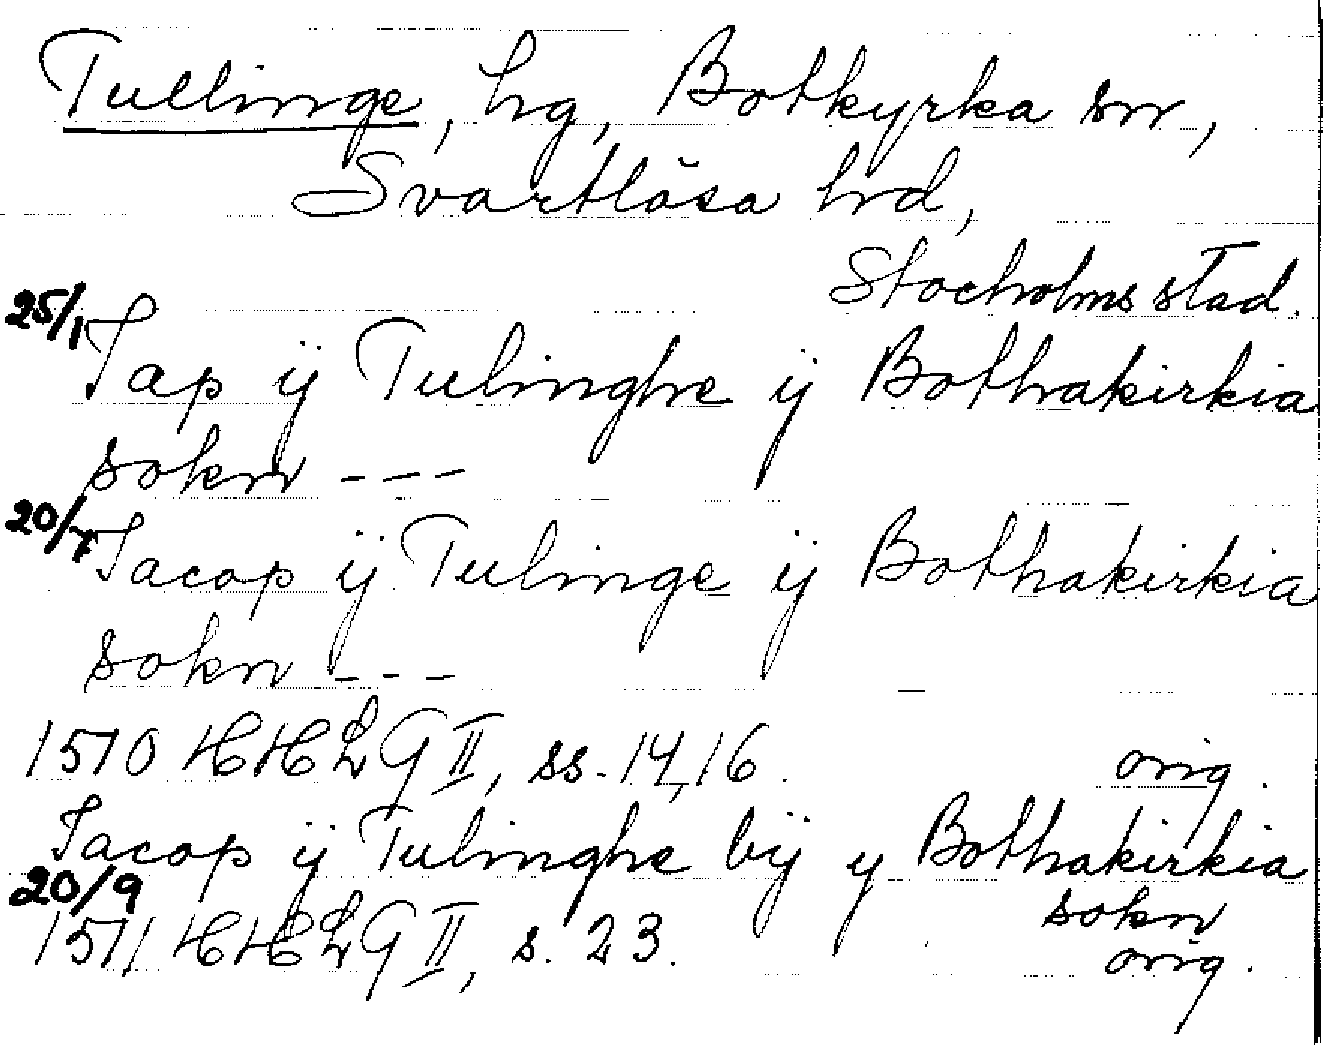 Tullinge, hg, Botkyrka sn,
Svartlösa hrd,
Stockholms stad.
25/1 Jap ÿ Tulinghe ÿ Bothakirkia
sokn ---
20/7 Jacop ÿ Tulinge ÿ Bothakirkia
sokn ---
1570 HHLG II, ss. 14, 16. orig.
Jacop ÿ Tulinghe bÿ y Bothakirkia
20/9 sokn
1571 HHLG II, s. 23. orig.